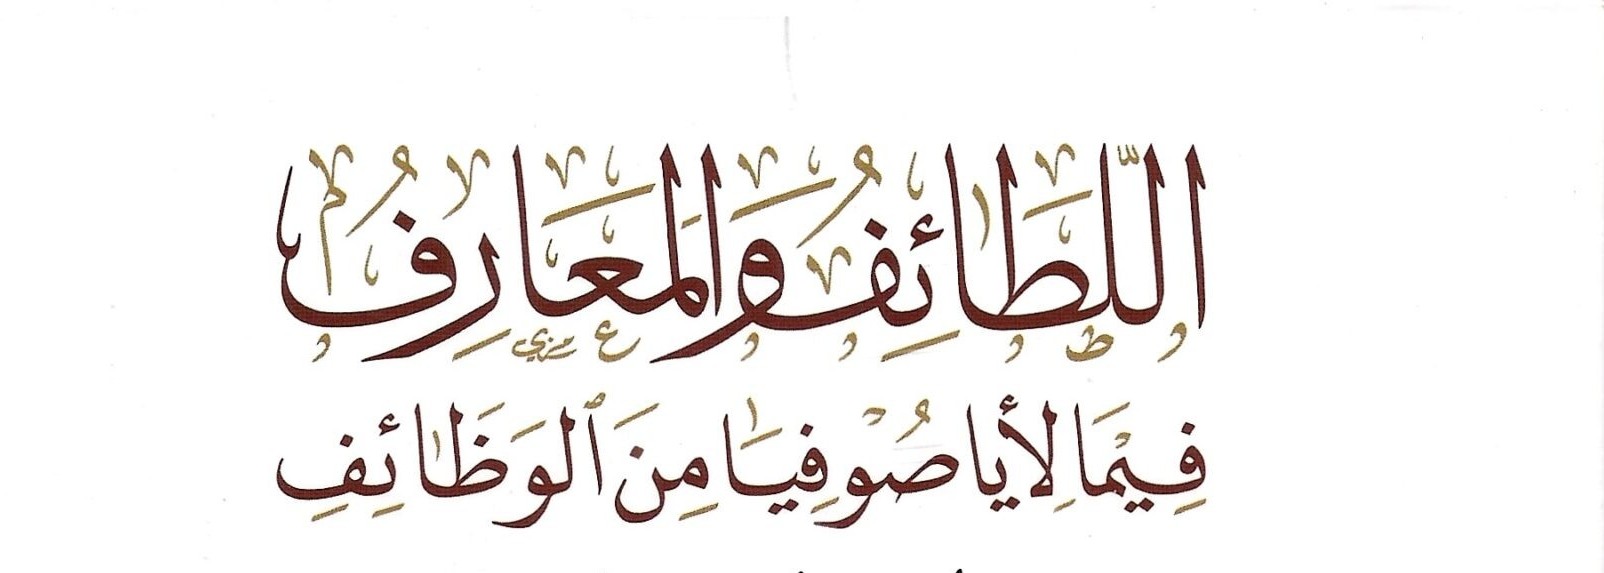 اللَّطَائِفُ وَالمَعَارِفُ
فِيمَا لِأَيَا صُوْفِيَا مِنَ ٱلْوَظَائِفِ